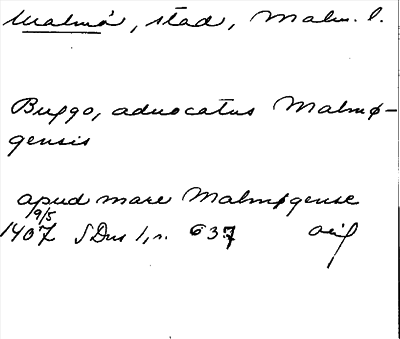 Malmö, stad, Malm. l.
Buggo, aduocatus Malmø-
gensis
apud mare Malmøgense
9/5
1407 SDns 1, n. 637 orig